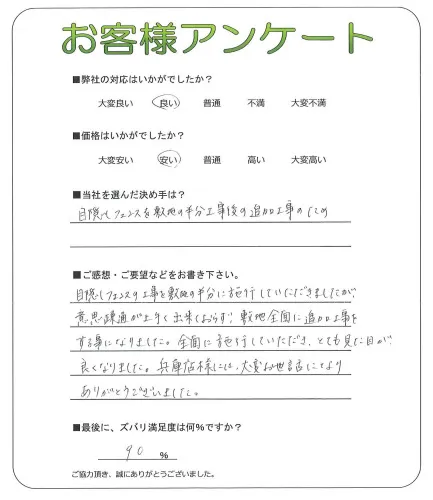 お客様アンケート
■弊社の対応はいかがでしたか？
大変良い 良い 普通 不満 大変不満
■価格はいかがでしたか？
大変安い 安い 普通 高い 大変高い
■当社を選んだ決め手は？
目隠しフェンスを敷地の半分工事後の追加工事のため
■ご感想・ご要望などをお書き下さい。
目隠しフェンスの工事を敷地の半分に施行していただきましたが、
意思疎通が上手く出来ておらず、敷地全面に追加工事を
する事になりました。全面に施行していただき、とても見た目が
良くなりました。兵庫店様には、大変お世話になり
ありがとうございました。
■最後に、ズバリ満足度は何％ですか？
90 ％
ご協力頂き、誠にありがとうございました。